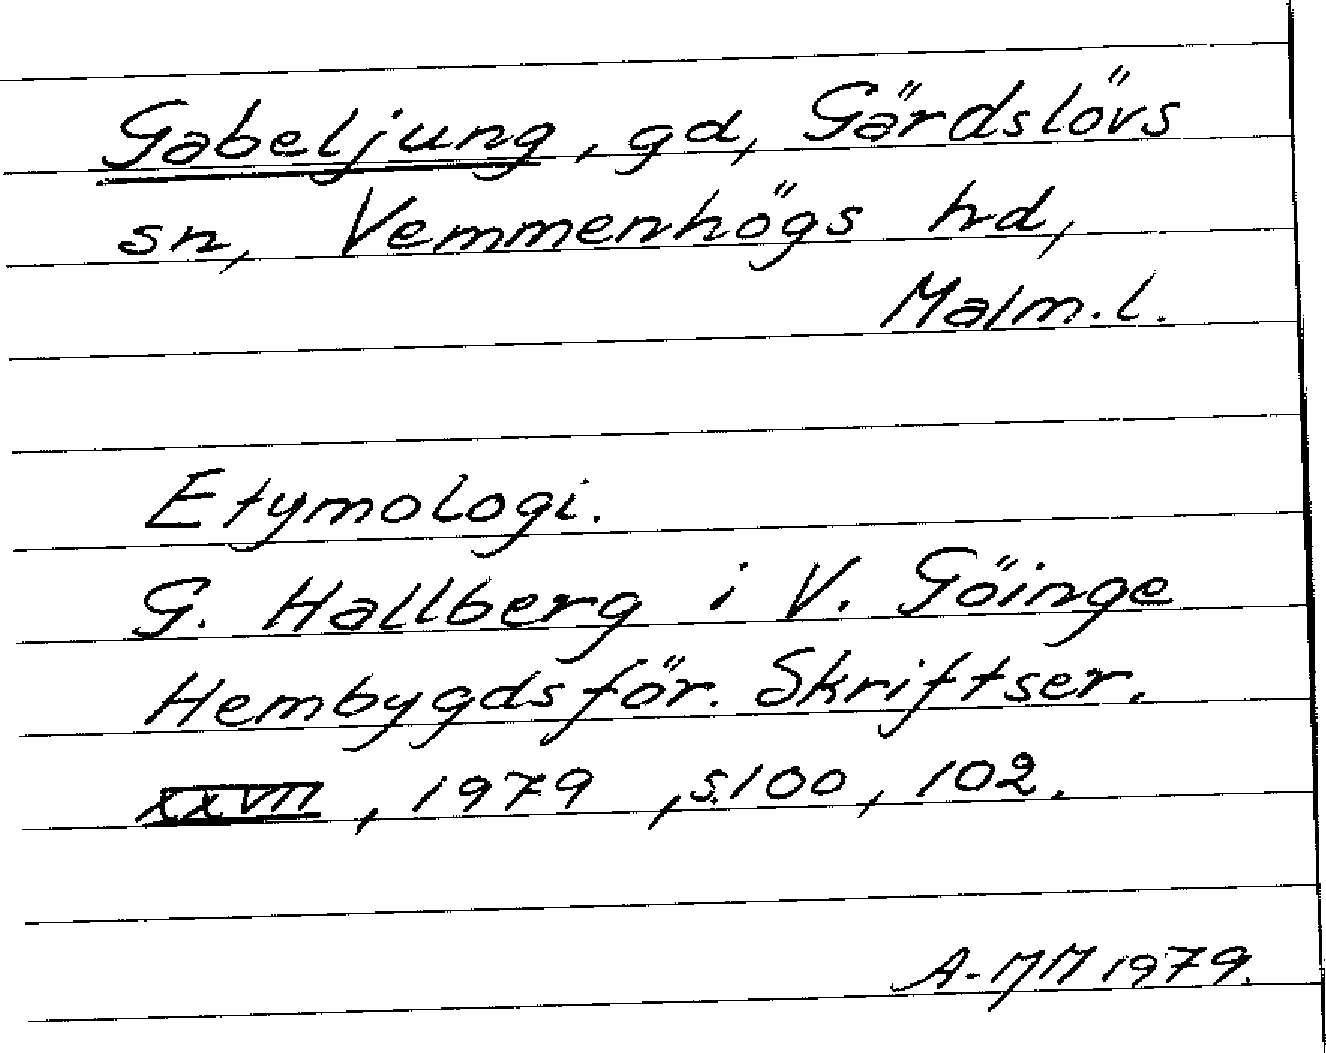 Gabeljung, gd, Gärdslövs
sn, Vemmenhögs hd,
Malm.l.
Etymologi.
G. Hallberg i V. Göinge
Hembygdsför. Skriftser.
XXVII, 1979, s.100, 102.
A-MM 1979.